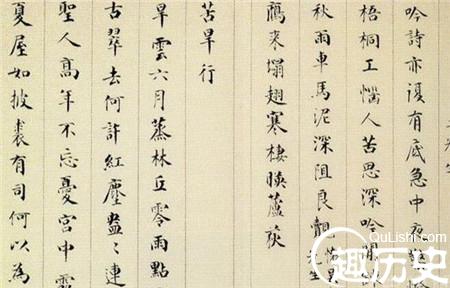 吟詩亦復有底急中夜
梧桐工惱人苦思深吟閒
秋雨車馬泥深阻良覿
鴈來塌翅寒棲暎蘆荻
苦旱行
旱雲六月蒸林丘零雨點
古翠去何許紅塵盎〻連
聖人高年不忘憂宮中露
夏屋如披裘有司何以為
QuLiShi.com
趣历史